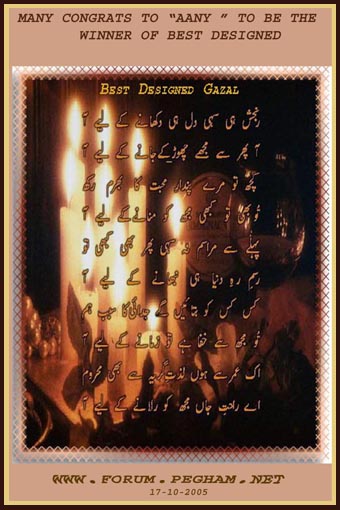 MANY CONGRATS TO “AANY ” TO BE THE
WINNER OF BEST DESIGNED
BEST DESIGNED GAZAL
رنجش ہی سہی دل ہی دکھانے کے لیے آ
آ پھر سے مجھے چھوڑ کے جانے کے لیے آ
کچھ تو مرے پندار محبت کا بھرم رکھ
تو بھی تو کبھی مجھ کو منانے کے لیے آ
پہلے سے مراسم نہ سہی پھر بھی کبھی تو
رسم رہِ دنیا ہی نبھانے کے لیے آ
کس کس کو بتائیں گے جدائی کا سبب ہم
تو مجھ سے خفا ہے تو زمانے کے لیے آ
اک عمر سے ہوں لذتِ گریہ سے بھی محروم
اے راحتِ جاں مجھ کو رلانے کے لیے آ
WWW.FORUM.PEGHAM.NET
17-10-2005